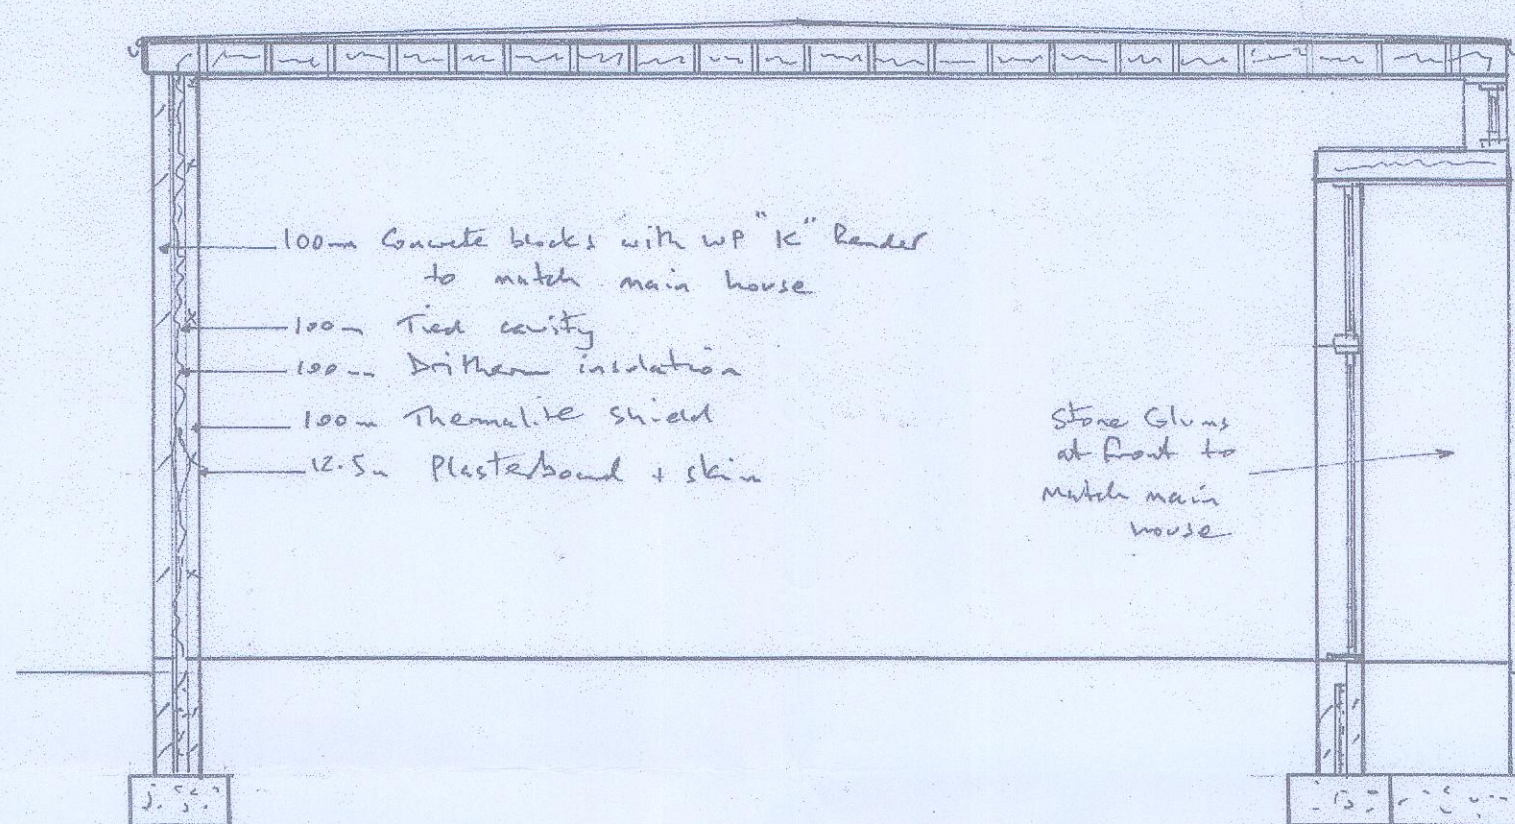 100mm Concrete blocks with WP "K" Render
to match main house
100m Tied cavity
100mm Dritherm insulation
100m Thermalite Shield
12.5m Plasterboard + skim
Stone Columns
at front to
match main
house